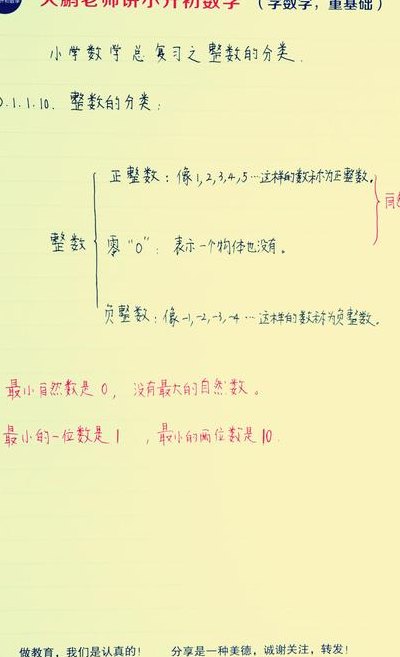 大鹏老师讲小升初数学 （学数学，重基础）
小学数学总复习之整数的分类.
.1.1.10. 整数的分类：
正整数：像1,2,3,4,5…这样的数称为正整数。
整数
零“0”：表示一个物体也没有。
负整数：像-1,-2,-3,-4…这样的数称为负整数。
最小自然数是0，没有最大的自然数。
最小的一位数是1，最小的两位数是10.
做教育，我们是认真的！ 分享是一种美德，诚谢关注，转发！